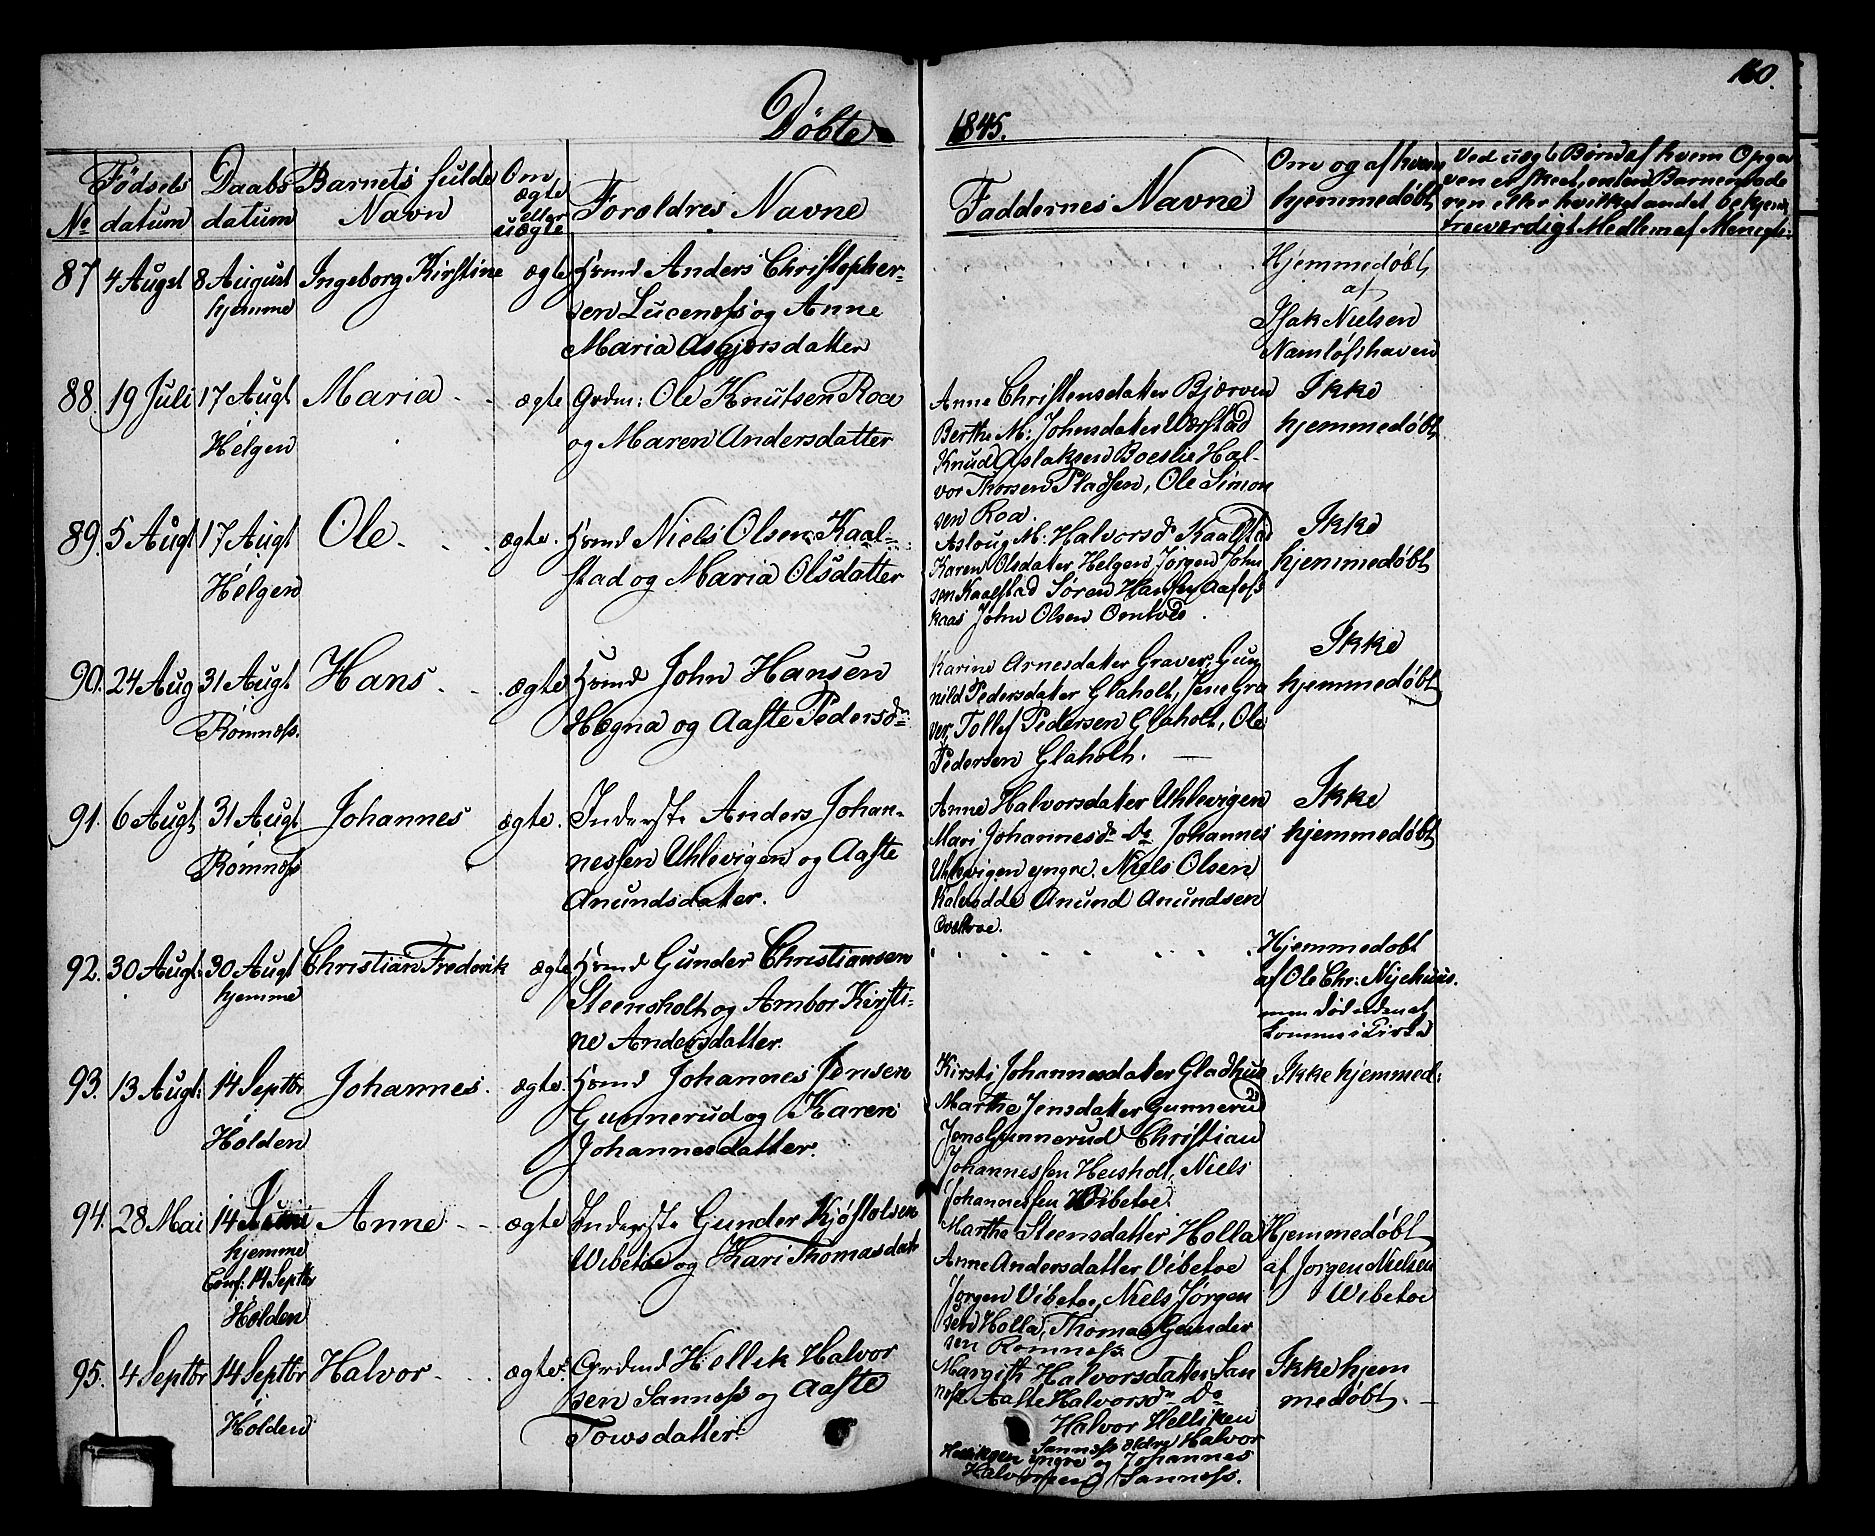 160.
Døbte 1845.
No
Fødsels datum
Daabs datum
Barnets fulde Navn
Om ægte eller uægte
Foroldres Navne
Faddernes Navne
Om og af hvem hjemmedøbt
Ved uægte Børn af hvem Opga
ven er skeet, enten Barnemode
ren eller hvilket andet bekjendt
troeværdigt Medlem af Menigh:
87 4 Augst 8 August Ingeborg Kirstine ægte Huusmd Anders Christopher-
hjemme
sen Lucenæss og Anne
Maria Asgjersdatter
Hjemmedøbt
af
Isak Nielsen
Namløshaven
88. 19 Juli 17 Augt Maria ægte Grdm: Ole Knutsen Roa
Helgen
og Maren Andersdatter
Anne Christensdatter Bjærven
Berthe M: Johnsdatter Værstad
Knud Aslaksen Boeslie Hal-
vor Thorsen Pladsen, Ole Simon
sen Roa.
Ikke
hjemmedøbt
89. 5 Augt 17 Augt Ole ægte. Huusmd Niels Olsen Kaal-
Helgen
stad og Maria Olsdatter
Aaslaug M: Halvorsd. Kaalstad
Karen Olsdatter Helgen, Jørgen John
sen Kaalstad Søren Hansen Aafoss
kaas John Olsen Omtvedt
Ikke
hjemmedøbt
90. 24 Aug 31 Augt. Hans ægte Huusmd John Hansen
Romnæss.
Hegna og Aaste Pedersdr
Karine Arnesdatter Graver, Gun
nild Pedersdatter Glaholt, Jens Gra
ver, Tollef Pedersen Glaholt, Ole
Pedersen Glaholt.
Ikke
hjemmedøbt
91. 6 Augt 31 Augt Johannes ægte. Inderste Anders Johan-
Romnæss
nessen Uhlevigen og Aaste
Anundsdatter.
Anne Halvorsdatter Uhlevigen
Mari Johannesdr Do Johannes
Uhlevigen yngre. Niels Olsen
Kalvodde Anund Anundsen
Ikke
hjemmedøbt
92. 30 Augt. 30 Augt Christian Frederik ægte Huusmd Gunder Christiansen
hjemme
Steensholt og Ambor Kirsti-
ne Andersdatter.
Hjemmedøbt
af Ole Chr: Nyehuus.
men død uden at
komme i Kirke
93. 13 Augt: 14 Septbr Johannes. ægte. Huusmd Johannes Jensen
Holden
Gunnerud og Karen
Johannesdatter.
Kirsti Johannesdatter Gladhuus
Marthe Jensdatter Gunnerud
Jens Gunnerud Christian
Johannessen Heisholt, Niels
Johannessen Wibetoe.
Ikke hjemmed:
94. 28 Mai 14 Juni Anne ægte Inderste Gunder Kjøstolsen
hjemme
Conf: 14 Septbr
Holden
Wibetoe og Kari Thomasdatt
Marthe Steensdatter Holla
Anne Andersdatter Vibetoe
Jørgen Vibetoe, Niels Jørgen
sen Holla, Thomas Gunder
sen Romnæss
Hjemmedøbt
af Jørgen Nielsen
Wibetoe
95. 4 Septbr 14 Septbr Halvor ægte. Grdmd Hellik Halvor
Holden
sen Sannæss og Aaste
Towsdatter.
Margith Halvorsdatter San
næss Aaste Halvorsdr Do
Halvor Helliksen
Sannæss ældre Halvor
Helliksen yngre og Johannes
Halvorsen Sannæss.
Ikke hjem
medøbt.